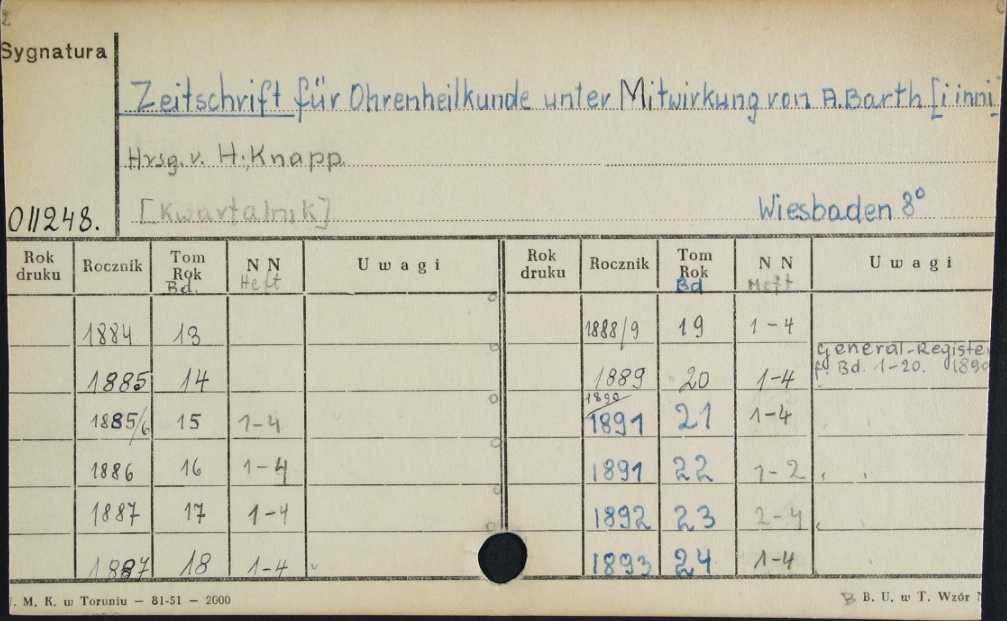 Sygnatura
Zeitschrift für Ohrenheilkunde unter Mitwirkung von A. Barth [i inni]
Hrsg. v. H. Knapp
011248. [Kwartalnik] Wiesbaden 8°
Rok druku Rocznik Tom Rok Bd. NN Heft Uwagi Rok druku Rocznik Tom Rok Bd NN Heft Uwagi
1884 13 1888/9 19 1-4
1885 14 1889 20 1-4 General-Register f. Bd. 1-20.
1885/6 15 1-4 1890/1891 21 1-4
1886 16 1-4 1891 22 1-2
1887 17 1-4 1892 23 2-4
1887 18 1-4 1893 24 1-4
M. K. w Toruniu — 81-51 — 2000 B. U. w T. Wzór